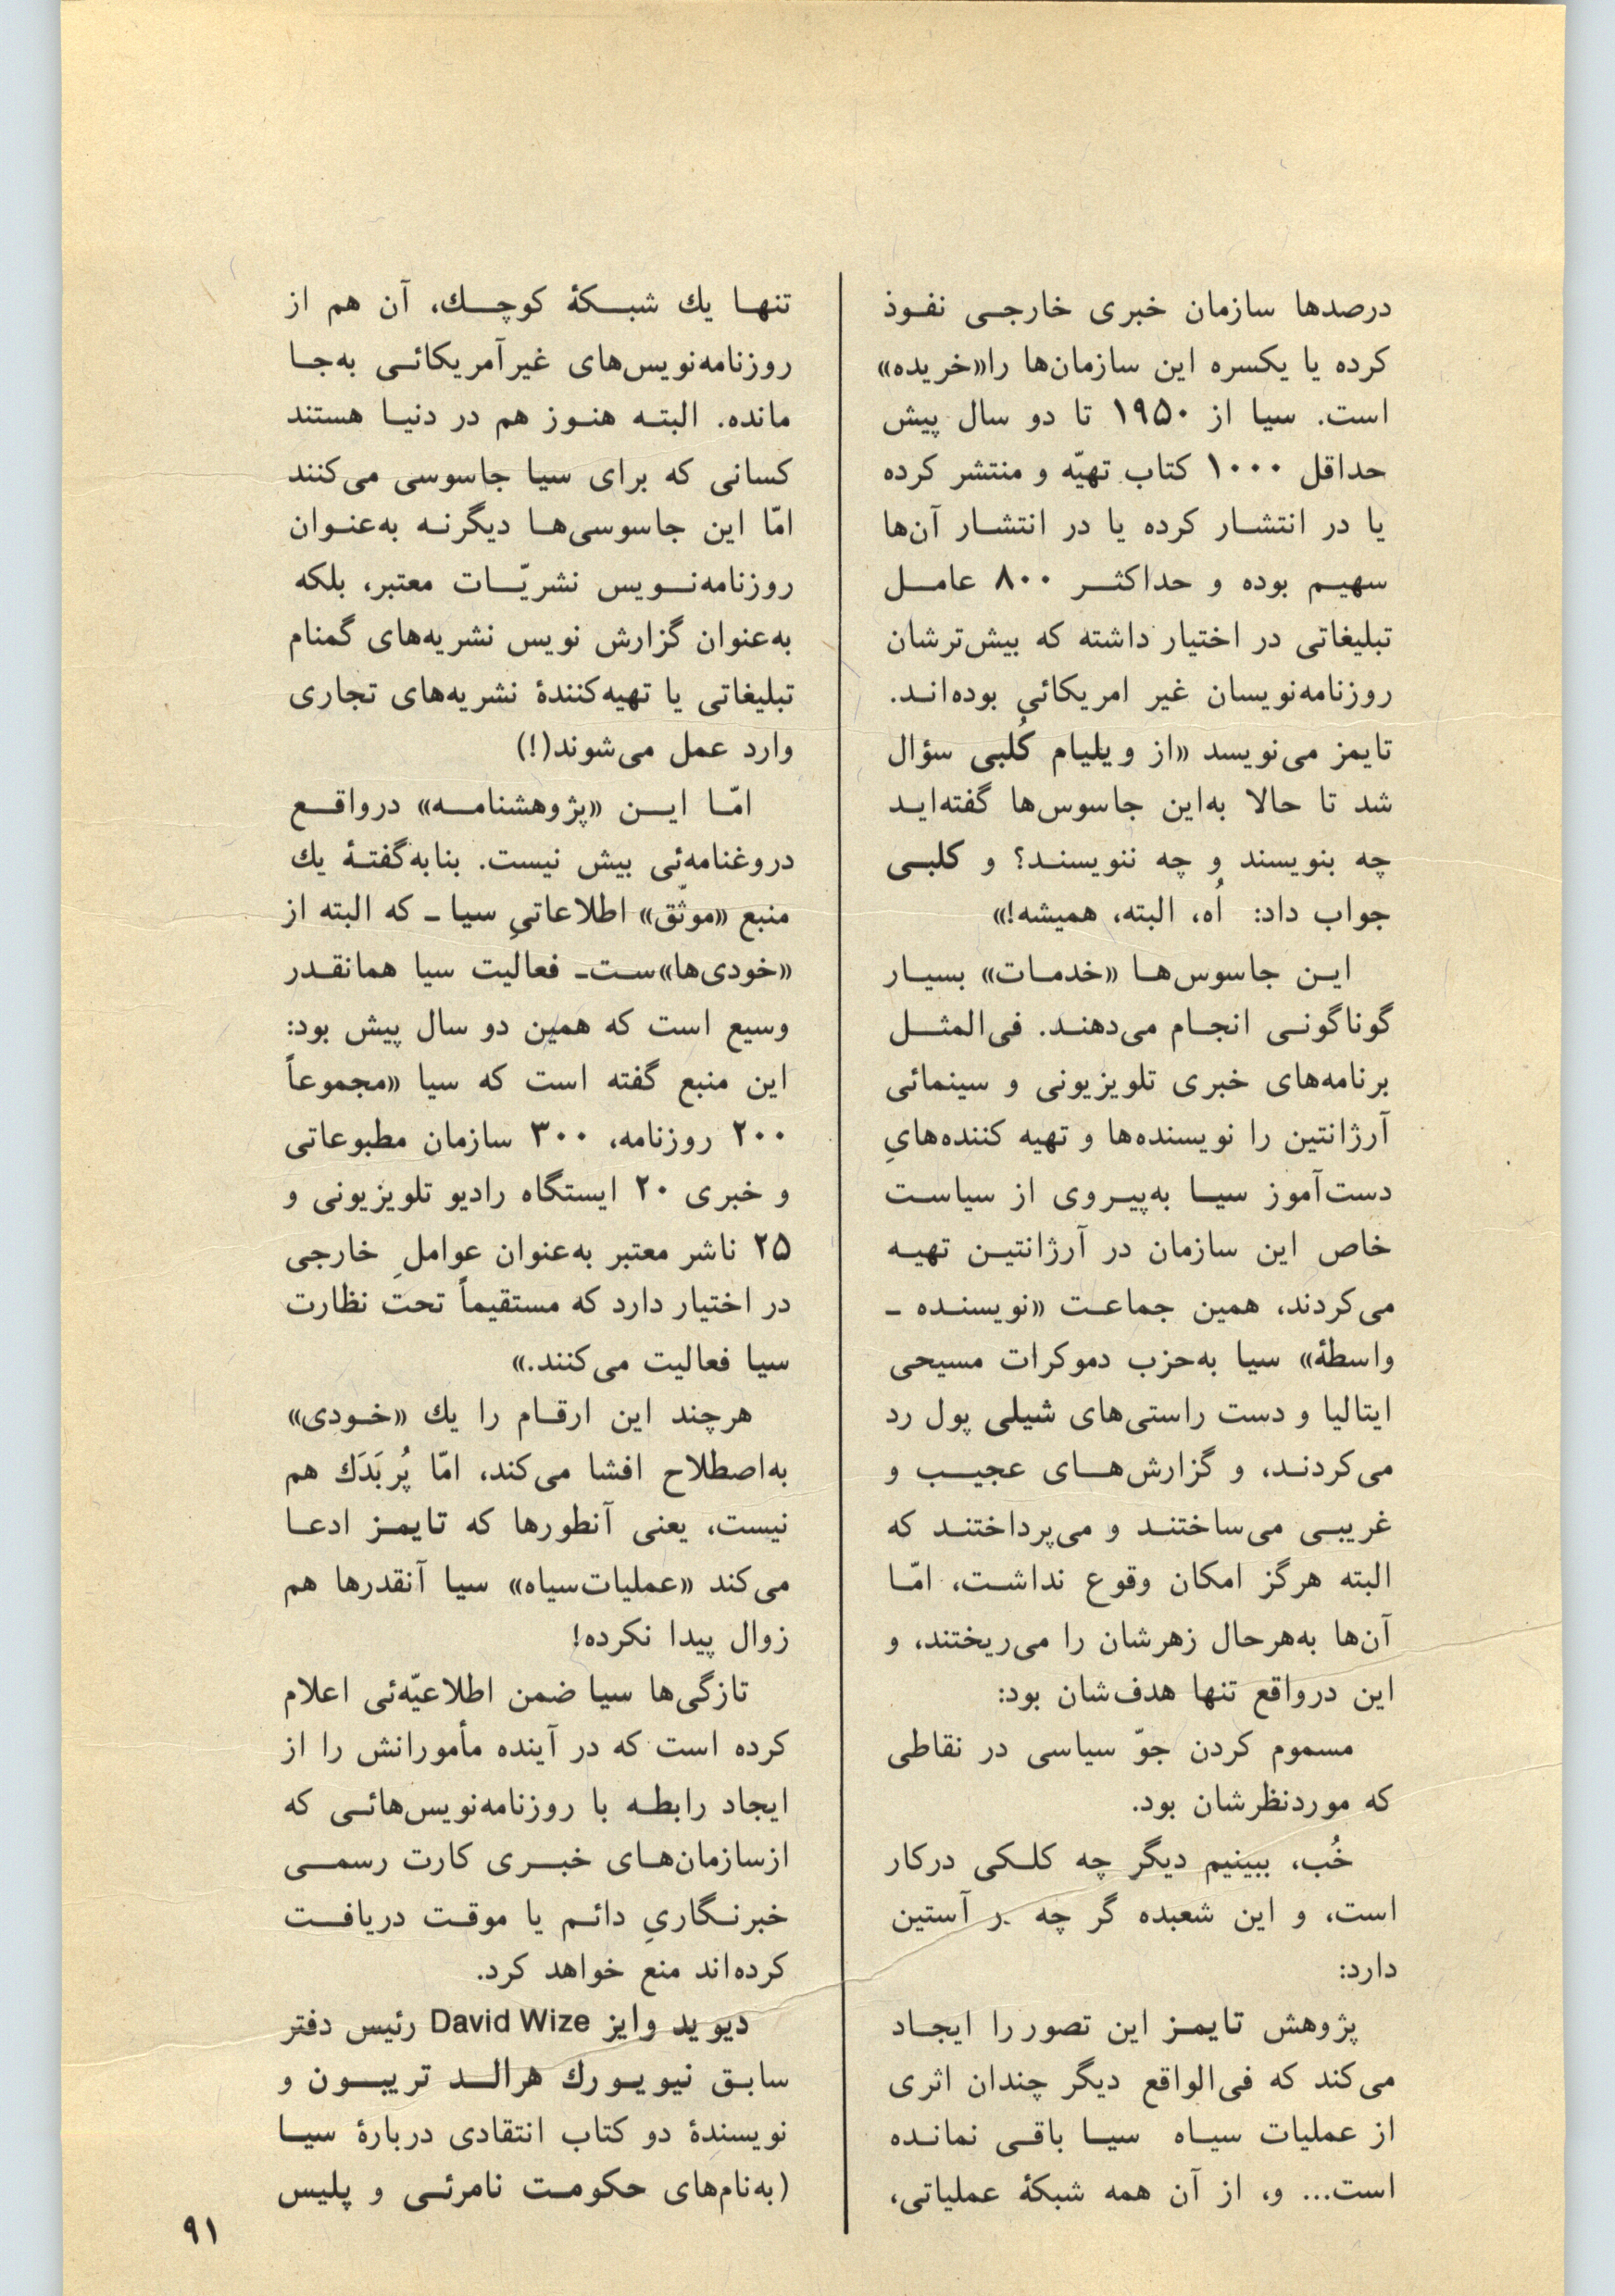 درصدها سازمان خبری خارجی نفوذ
کرده یا یکسره این سازمان‌ها را«خریده»
است. سیا از ۱۹۵۰ تا دو سال پیش
حداقل ۱۰۰۰ کتاب تهیّه و منتشر کرده
یا در انتشار کرده یا در انتشار آن‌ها
سهیم بوده و حداکثر ۸۰۰ عامل
تبلیغاتی در اختیار داشته که بیش‌ترشان
روزنامه‌نویسان غیر امریکائی بوده‌اند.
تایمز می‌نویسد «از ویلیام کُلبی سؤال
شد تا حالا به‌این جاسوس‌ها گفته‌اید
چه بنویسند و چه ننویسند؟ و کلبی
جواب داد: اُه، البته، همیشه!»
این جاسوس‌ها «خدمات» بسیار
گوناگونی انجام می‌دهند. فی‌المثل
برنامه‌های خبری تلویزیونی و سینمائی
آرژانتین را نویسنده‌ها و تهیه کننده‌هایِ
دست‌آموز سیا به‌پیروی از سیاست
خاص این سازمان در آرژانتین تهیه
می‌کردند، همین جماعت «نویسنده ـ
واسطهٔ» سیا به‌حزب دموکرات مسیحی
ایتالیا و دست راستی‌های شیلی پول رد
می‌کردند، و گزارش‌های عجیب و
غریبی می‌ساختند و می‌پرداختند که
البته هرگز امکان وقوع نداشت، امّا
آن‌ها به‌هرحال زهرشان را می‌ریختند، و
این درواقع تنها هدف‌شان بود:
مسموم کردن جوّ سیاسی در نقاطی
که موردنظرشان بود.
خُب، ببینیم دیگر چه کلکی درکار
است، و این شعبده گر چه در آستین
دارد:
پژوهش تایمز این تصور را ایجاد
می‌کند که فی‌الواقع دیگر چندان اثری
از عملیات سیاه سیا باقی نمانده
است... و، از آن همه شبکهٔ عملیاتی،
تنها یك شبکهٔ کوچك، آن هم از
روزنامه‌نویس‌های غیرآمریکائی به‌جا
مانده. البته هنوز هم در دنیا هستند
کسانی که برای سیا جاسوسی می‌کنند
امّا این جاسوسی‌ها دیگرنه به‌عنوان
روزنامه‌نویس نشریّات معتبر، بلکه
به‌عنوان گزارش نویس نشریه‌های گمنام
تبلیغاتی یا تهیه‌کنندهٔ نشریه‌های تجاری
وارد عمل می‌شوند(!)
امّا این «پژوهشنامه» درواقع
دروغنامه‌ئی بیش نیست. بنابه‌گفتهٔ یك
منبع «موثّق» اطلاعاتیِ سیا ـ که البته از
«خودی‌ها»ست‌ـ فعالیت سیا همانقدر
وسیع است که همین دو سال پیش بود:
این منبع گفته است که سیا «مجموعاً
۲۰۰ روزنامه، ۳۰۰ سازمان مطبوعاتی
و خبری ۲۰ ایستگاه رادیو تلویزیونی و
۲۵ ناشر معتبر به‌عنوان عواملِ خارجی
در اختیار دارد که مستقیماً تحت نظارت
سیا فعالیت می‌کنند.»
هرچند این ارقام را یك «خودی»
به‌اصطلاح افشا می‌کند، امّا پُر بَدَك هم
نیست، یعنی آنطورها که تایمز ادعا
می‌کند «عملیات‌سیاه» سیا آنقدرها هم
زوال پیدا نکرده!
تازگی‌ها سیا ضمن اطلاعیّه‌ئی اعلام
کرده است که در آینده مأمورانش را از
ایجاد رابطه با روزنامه‌نویس‌هائی که
ازسازمان‌های خبری کارت رسمی
خبرنگاریِ دائم یا موقت دریافت
کرده‌اند منع خواهد کرد.
دیوید وایز David Wize رئیس دفتر
سابق نیویورك هرالد تریبون و
نویسندهٔ دو کتاب انتقادی دربارهٔ سیا
(به‌نام‌های حکومت نامرئی و پلیس
۹۱